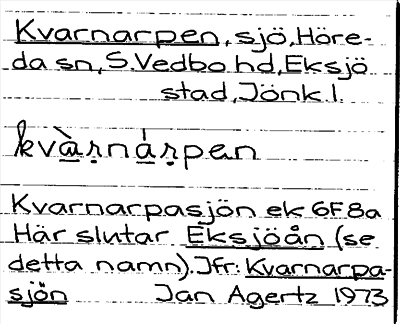 Kvarnarpen, sjö, Höre-
da sn, S. Vedbo hd, Eksjö
stad, Jönk. l.
kvàṛnáṛpen
Kvarnarpasjön ek 6F8a
Här slutar Eksjöån (se
detta namn). Jfr: Kvarnarpa-
sjön Jan Agertz 1973